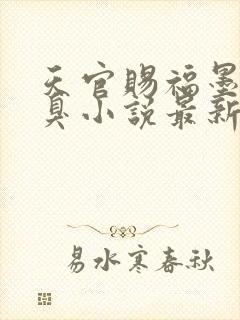 天官賜福墨
臭小説最新
易水寒春秋